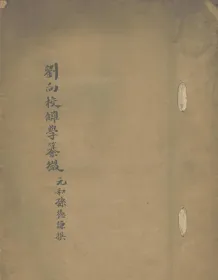 劉向校讎學纂微
元和孫德謙撰